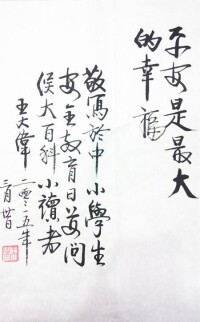 平安是最大
的幸福
敬寫於中小學生
安全教育日並问
候大百科小讀者
王大偉 二零一五年
三月卅日